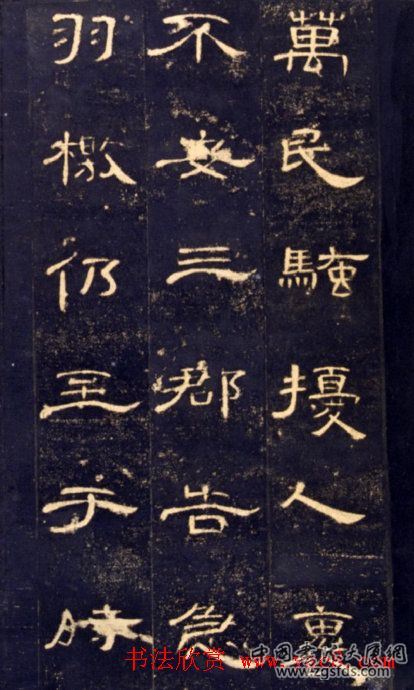 萬民騷擾人褱
不安三郡告急
羽檄仍至于時
书法欣赏
www.zgsfds.com